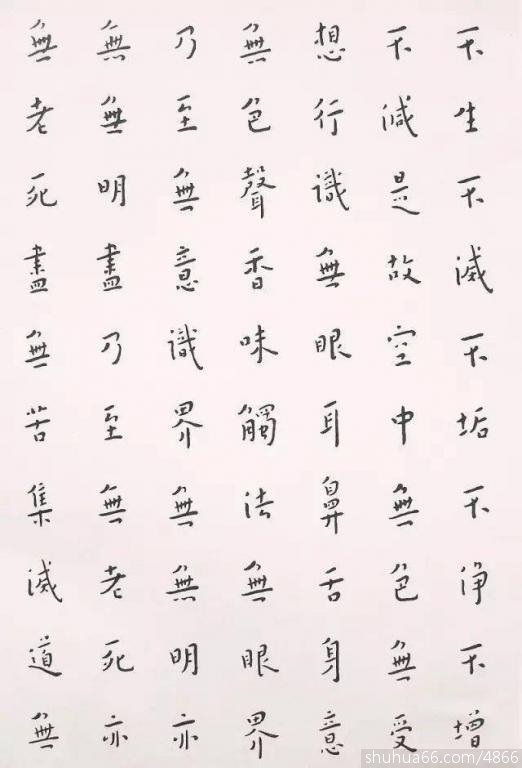 不生不滅不垢不淨不增
不減是故空中無色無受
想行識無眼耳鼻舌身意
無色聲香味觸法無眼界
乃至無意識界無無明亦
無無明盡乃至無老死亦
無老死盡無苦集滅道無
shuhua66.com/4866